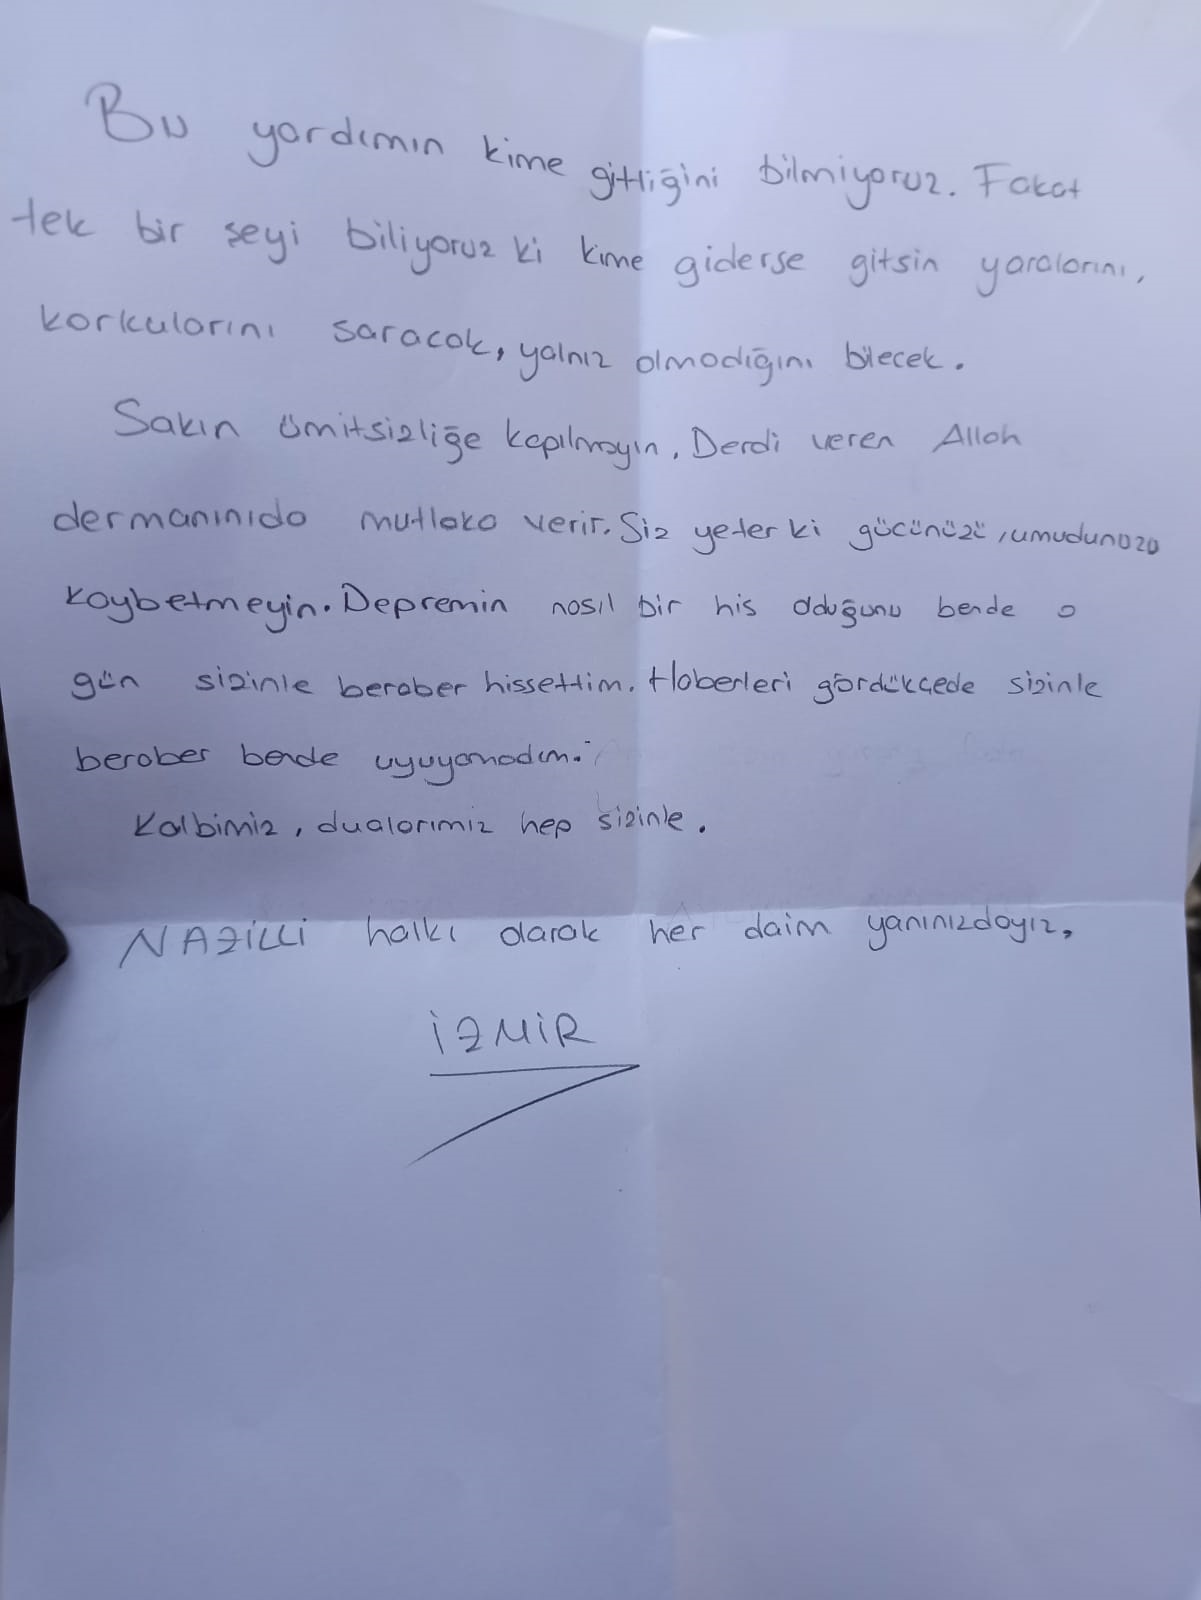 Bu yardımın kime gittiğini bilmiyoruz. Fakat
tek bir şeyi biliyoruz ki kime giderse gitsin yaralarını,
korkularını saracak, yalnız olmadığını bilecek.
Sakın ümitsizliğe kapılmayın. Derdi veren Allah
dermanınıda mutlaka verir. Siz yeter ki gücünüzü, umudunuzu
kaybetmeyin. Depremin nasıl bir his olduğunu bende o
gün sizinle beraber hissettim. Haberleri gördükçede sizinle
beraber bende uyuyamadım.
Kalbimiz, dualarımız hep sizinle.
NAZİLLİ halkı olarak her daim yanınızdayız,
İZMİR